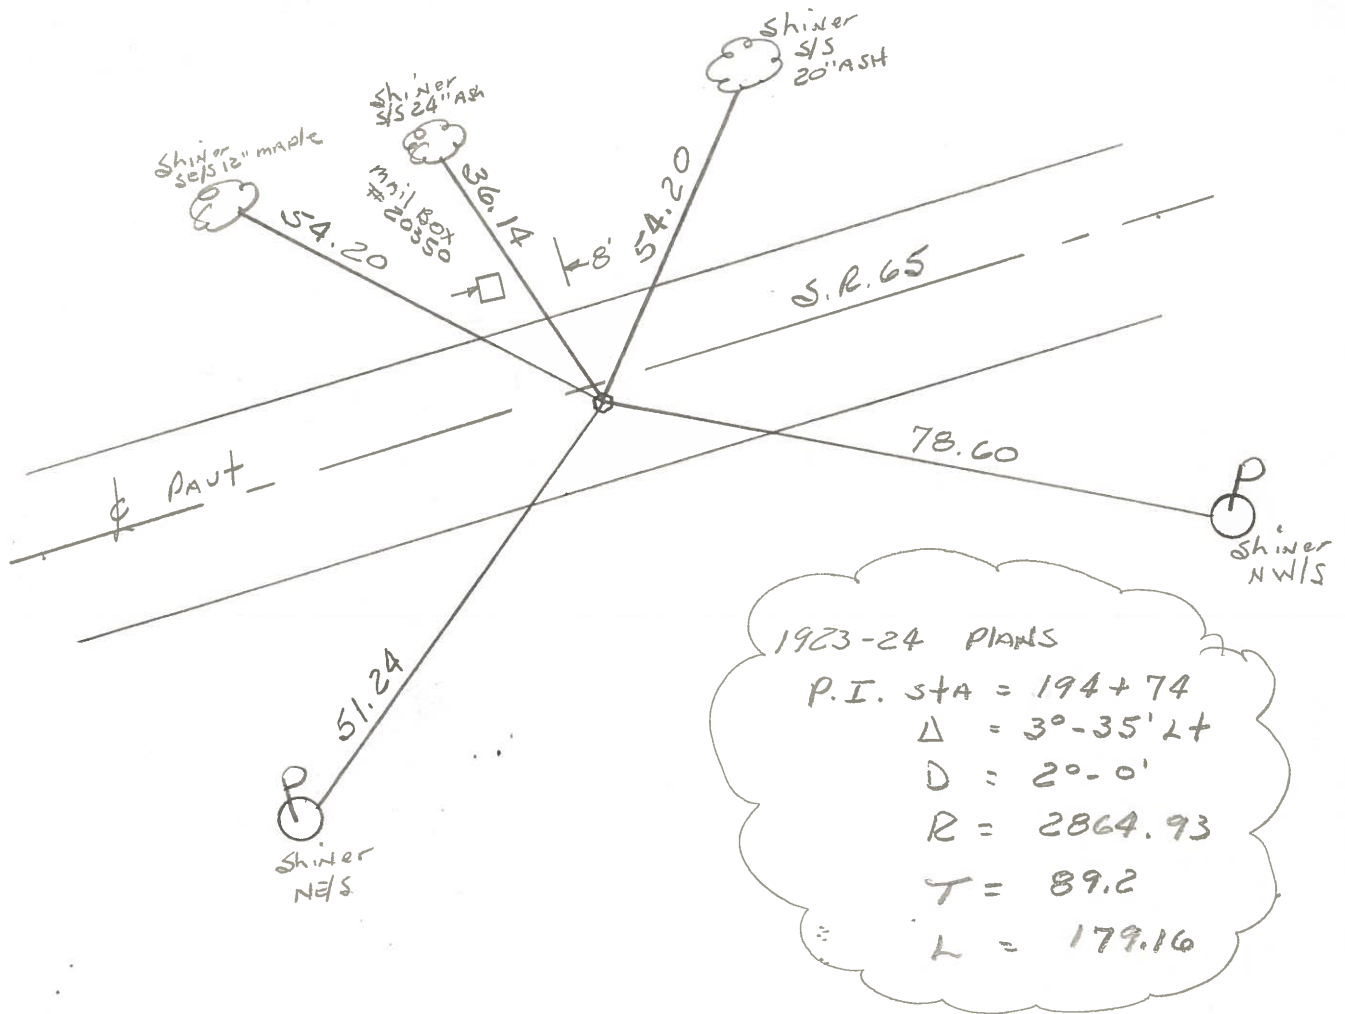 Shiner
S/S
20" ASH
Shiner
S/S 24" Ash
Shiner
SE/S 12" maple
Mail Box
# 20350
54.20
36.14
8'
54.20
S.R. 65
℄ Pavt
78.60
Shiner
NW/S
51.24
Shiner
NE/S
1923-24 PlANS
P.I. StA = 194+74
Δ = 3°-35' Lt
D = 2°-0'
R = 2864.93
T = 89.2
L = 179.16